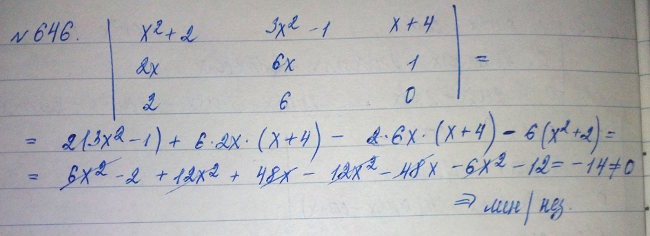 №646. | x²+2 3x²-1 x+4 |
| 2x 6x 1 | =
| 2 6 0 |
= 2(3x²-1) + 6·2x·(x+4) - 2·6x·(x+4) - 6(x²+2) =
= 6x² - 2 + 12x² + 48x - 12x² - 48x - 6x² - 12 = -14 ≠ 0
⇒ лин/нез.